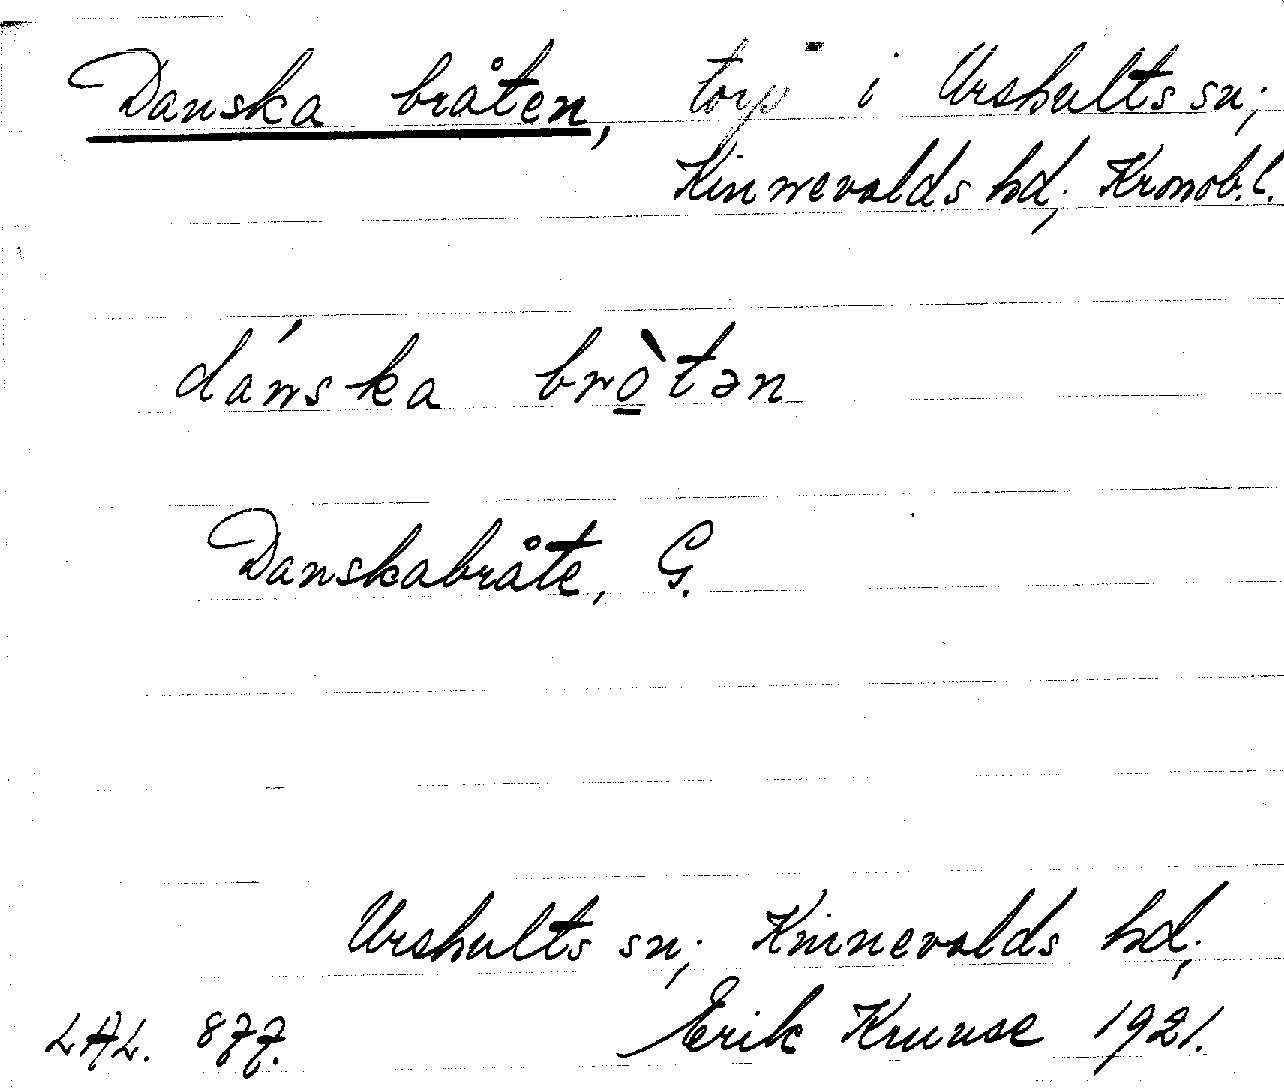 Danska bråten, torp i Urshults sn;
Kinnevalds hd; Kronob.l.
dánska brò̲tən
Danskabråte, G.
Urshults sn; Kinnevalds hd;
LAL. 877. Erik Kruuse 1921.